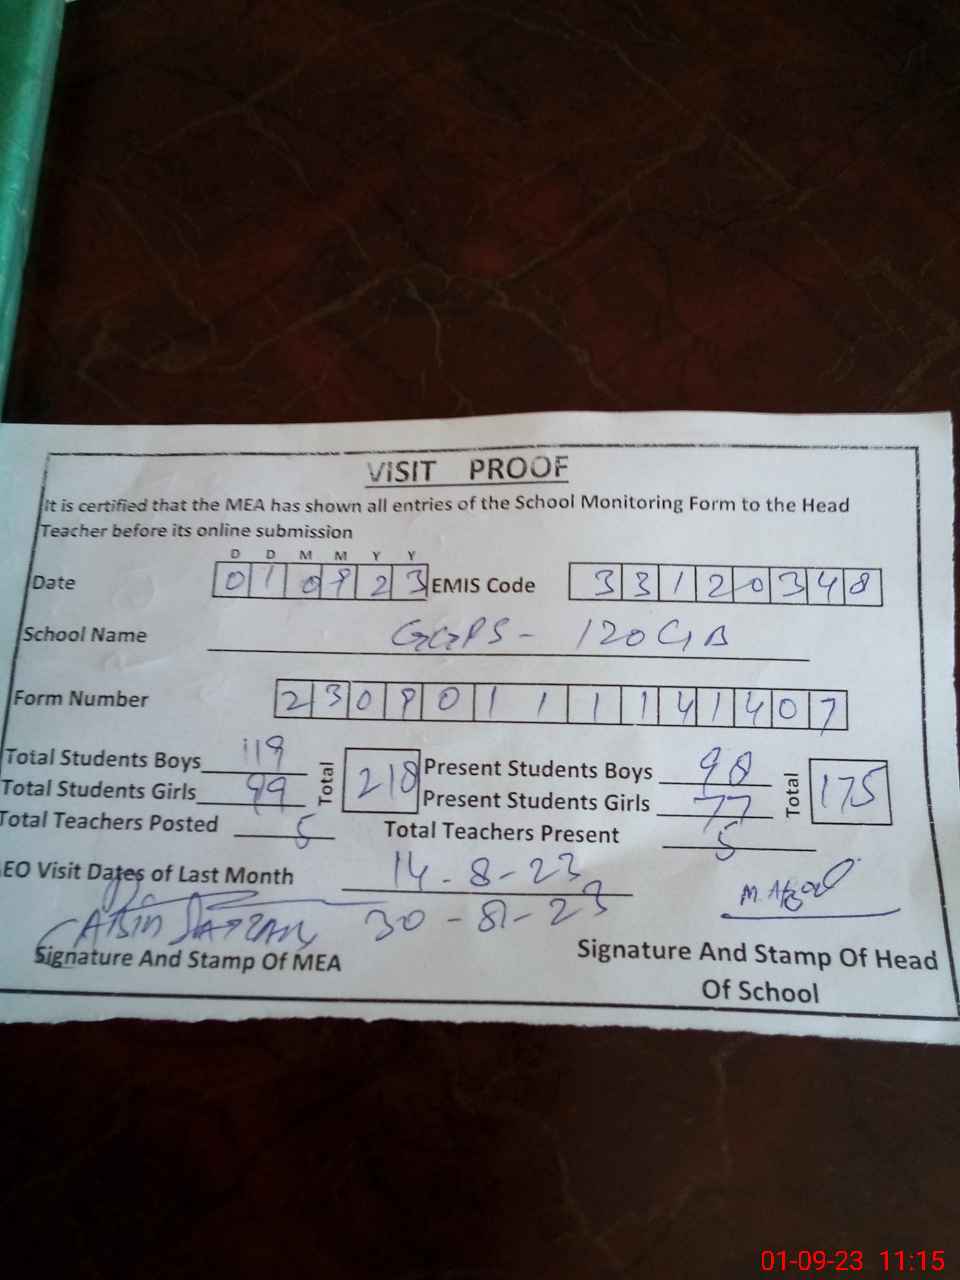 VISIT PROOF
It is certified that the MEA has shown all entries of the School Monitoring Form to the Head
Teacher before its online submission
D D M M Y Y
Date 01 09 23 EMIS Code 33120348
School Name GGPS - 120 GB
Form Number 23090111141407
Total Students Boys 119 Total 218 Present Students Boys 98 Total 175
Total Students Girls 99 Present Students Girls 77
Total Teachers Posted 5 Total Teachers Present 5
EO Visit Dates of Last Month 14-8-23
30-8-23
Signature And Stamp Of MEA
Signature And Stamp Of Head
Of School
01-09-23 11:15